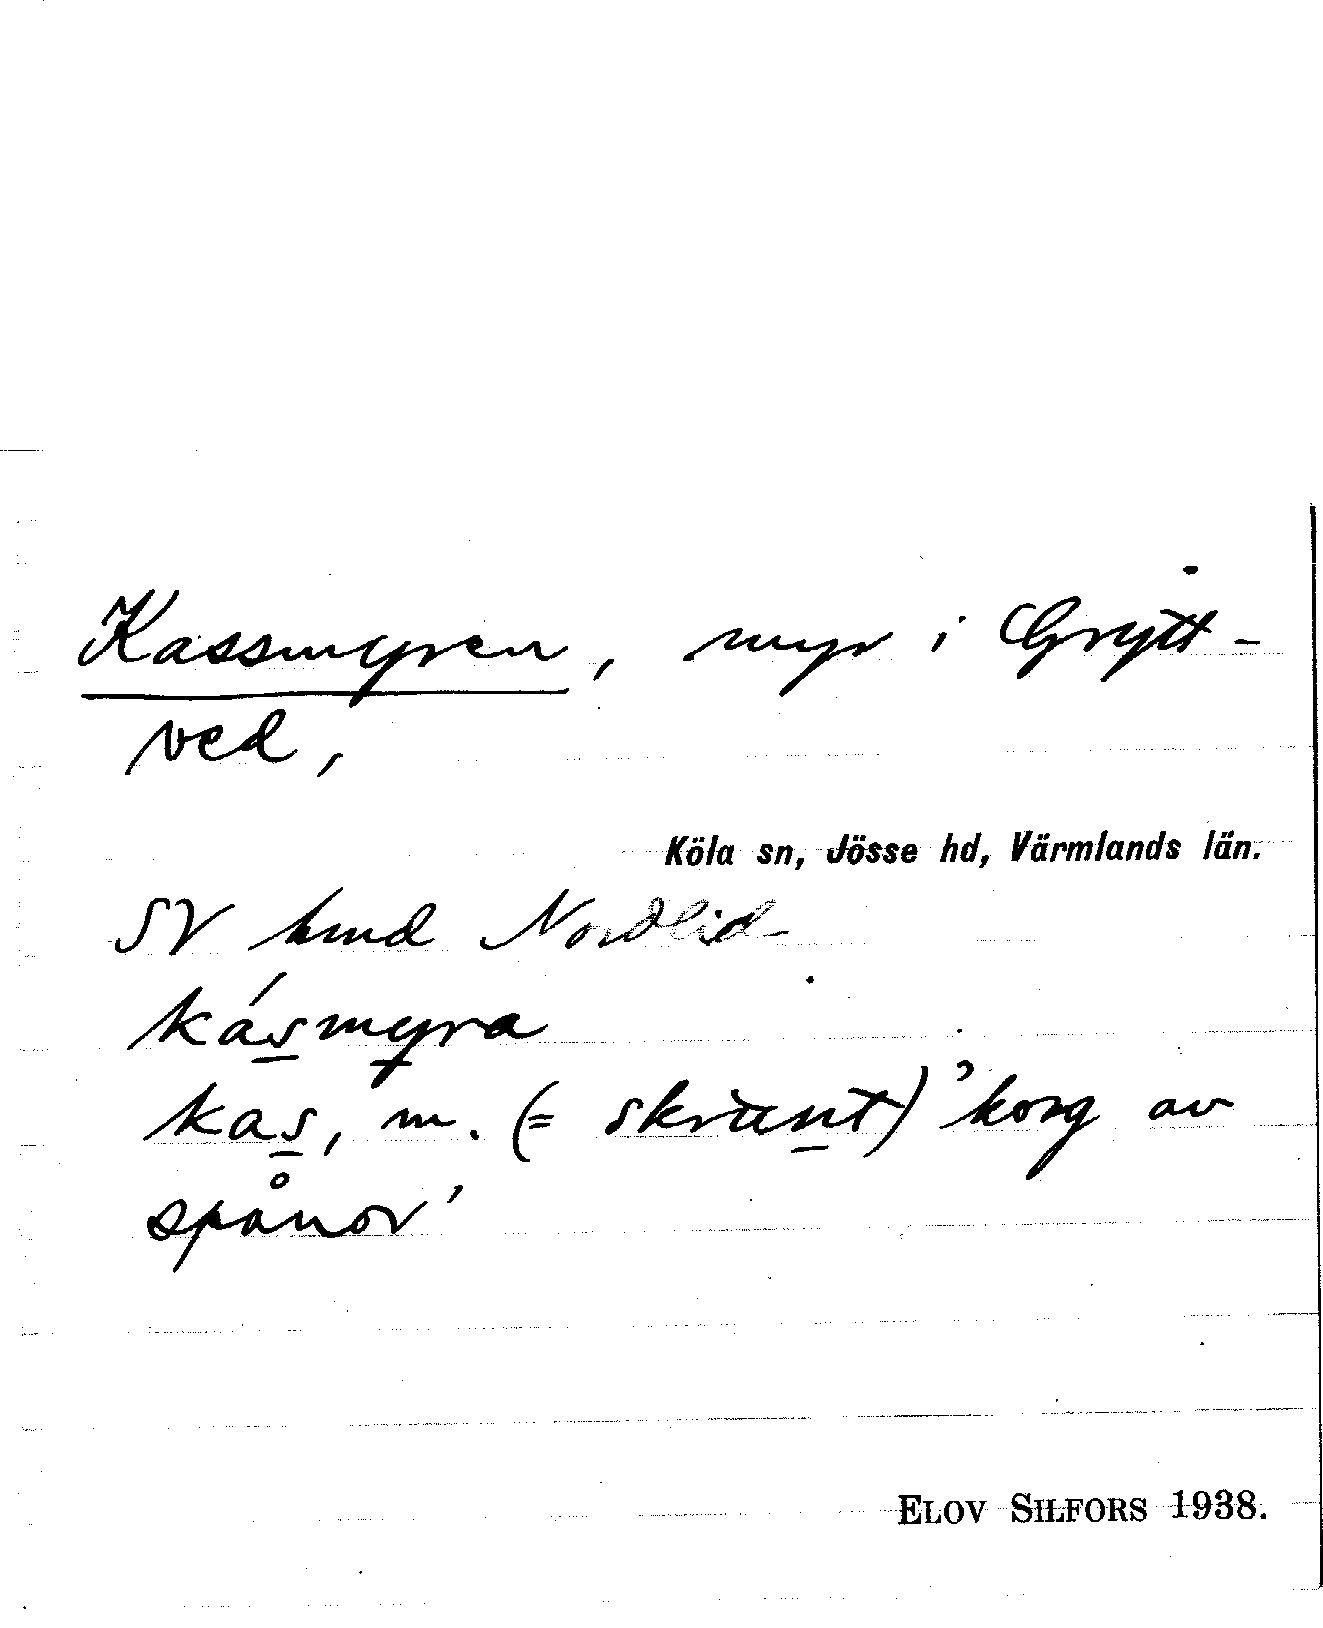 Kassmyren, myr i Grytt-
ved,
Köla sn, Jösse hd, Värmlands län.
SV hmd Nordlid
kásmyra
kas, m. (= skrunt) 'korg av
spånor'
ELOV SILFORS 1938.